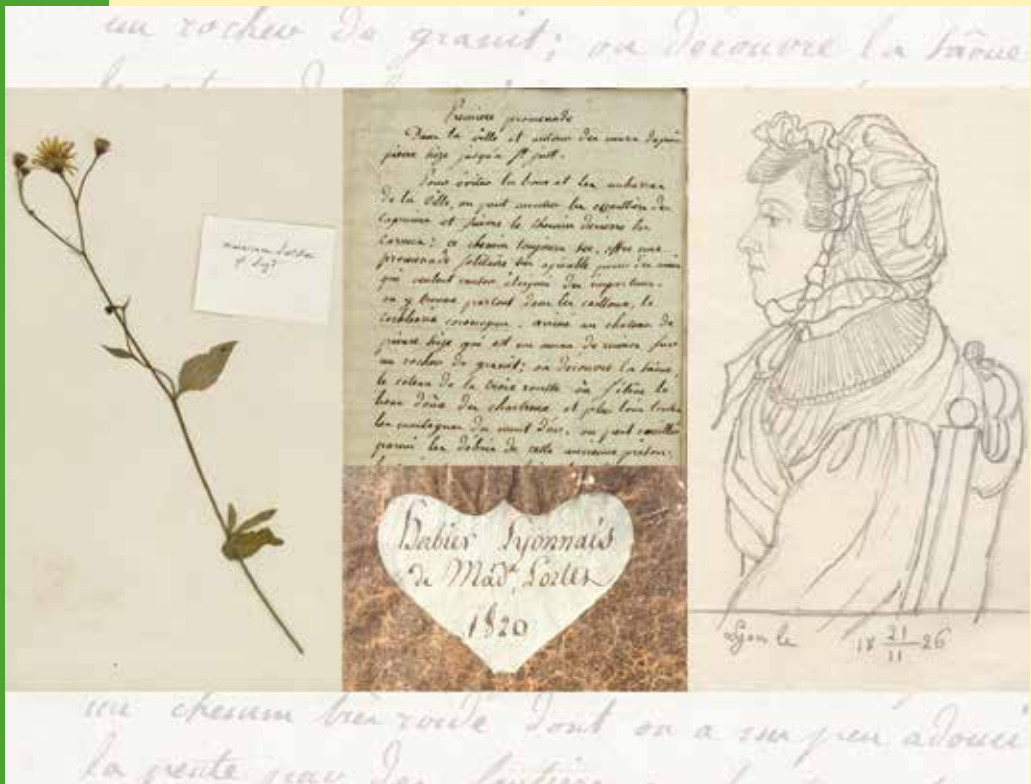 un rocher de granit; on découvre la Saône
Première promenade
Dans la ville et autour des murs depuis
pierre Size jusqu'à St just.
Pour éviter la boue et les
de la ville, on peut monter les
capucins et suivre le chemin derrière les
carmes; ce chemin toujours sec, offre une
promenade solitaire très agréable pour
qui veulent éloignés des importuns.
on y trouve partout dans les cailloux, le
coronopus. arrivé au château de
pierre Size qui est en sur
un rocher de granit; on découvre la Saône,
le coteau de la Croix rousse où s'élève le
beau dôme des chartreux et plus loin toutes
les montagnes du mont d'or. on peut cueillir
parmi les débris de cette ancienne prison,
Herbier Lyonnais
de Made. Lortet
1820
Lyon le 18 21/11 26
un chemin bien roide dont on a un peu adouci
la pente par des sentiers